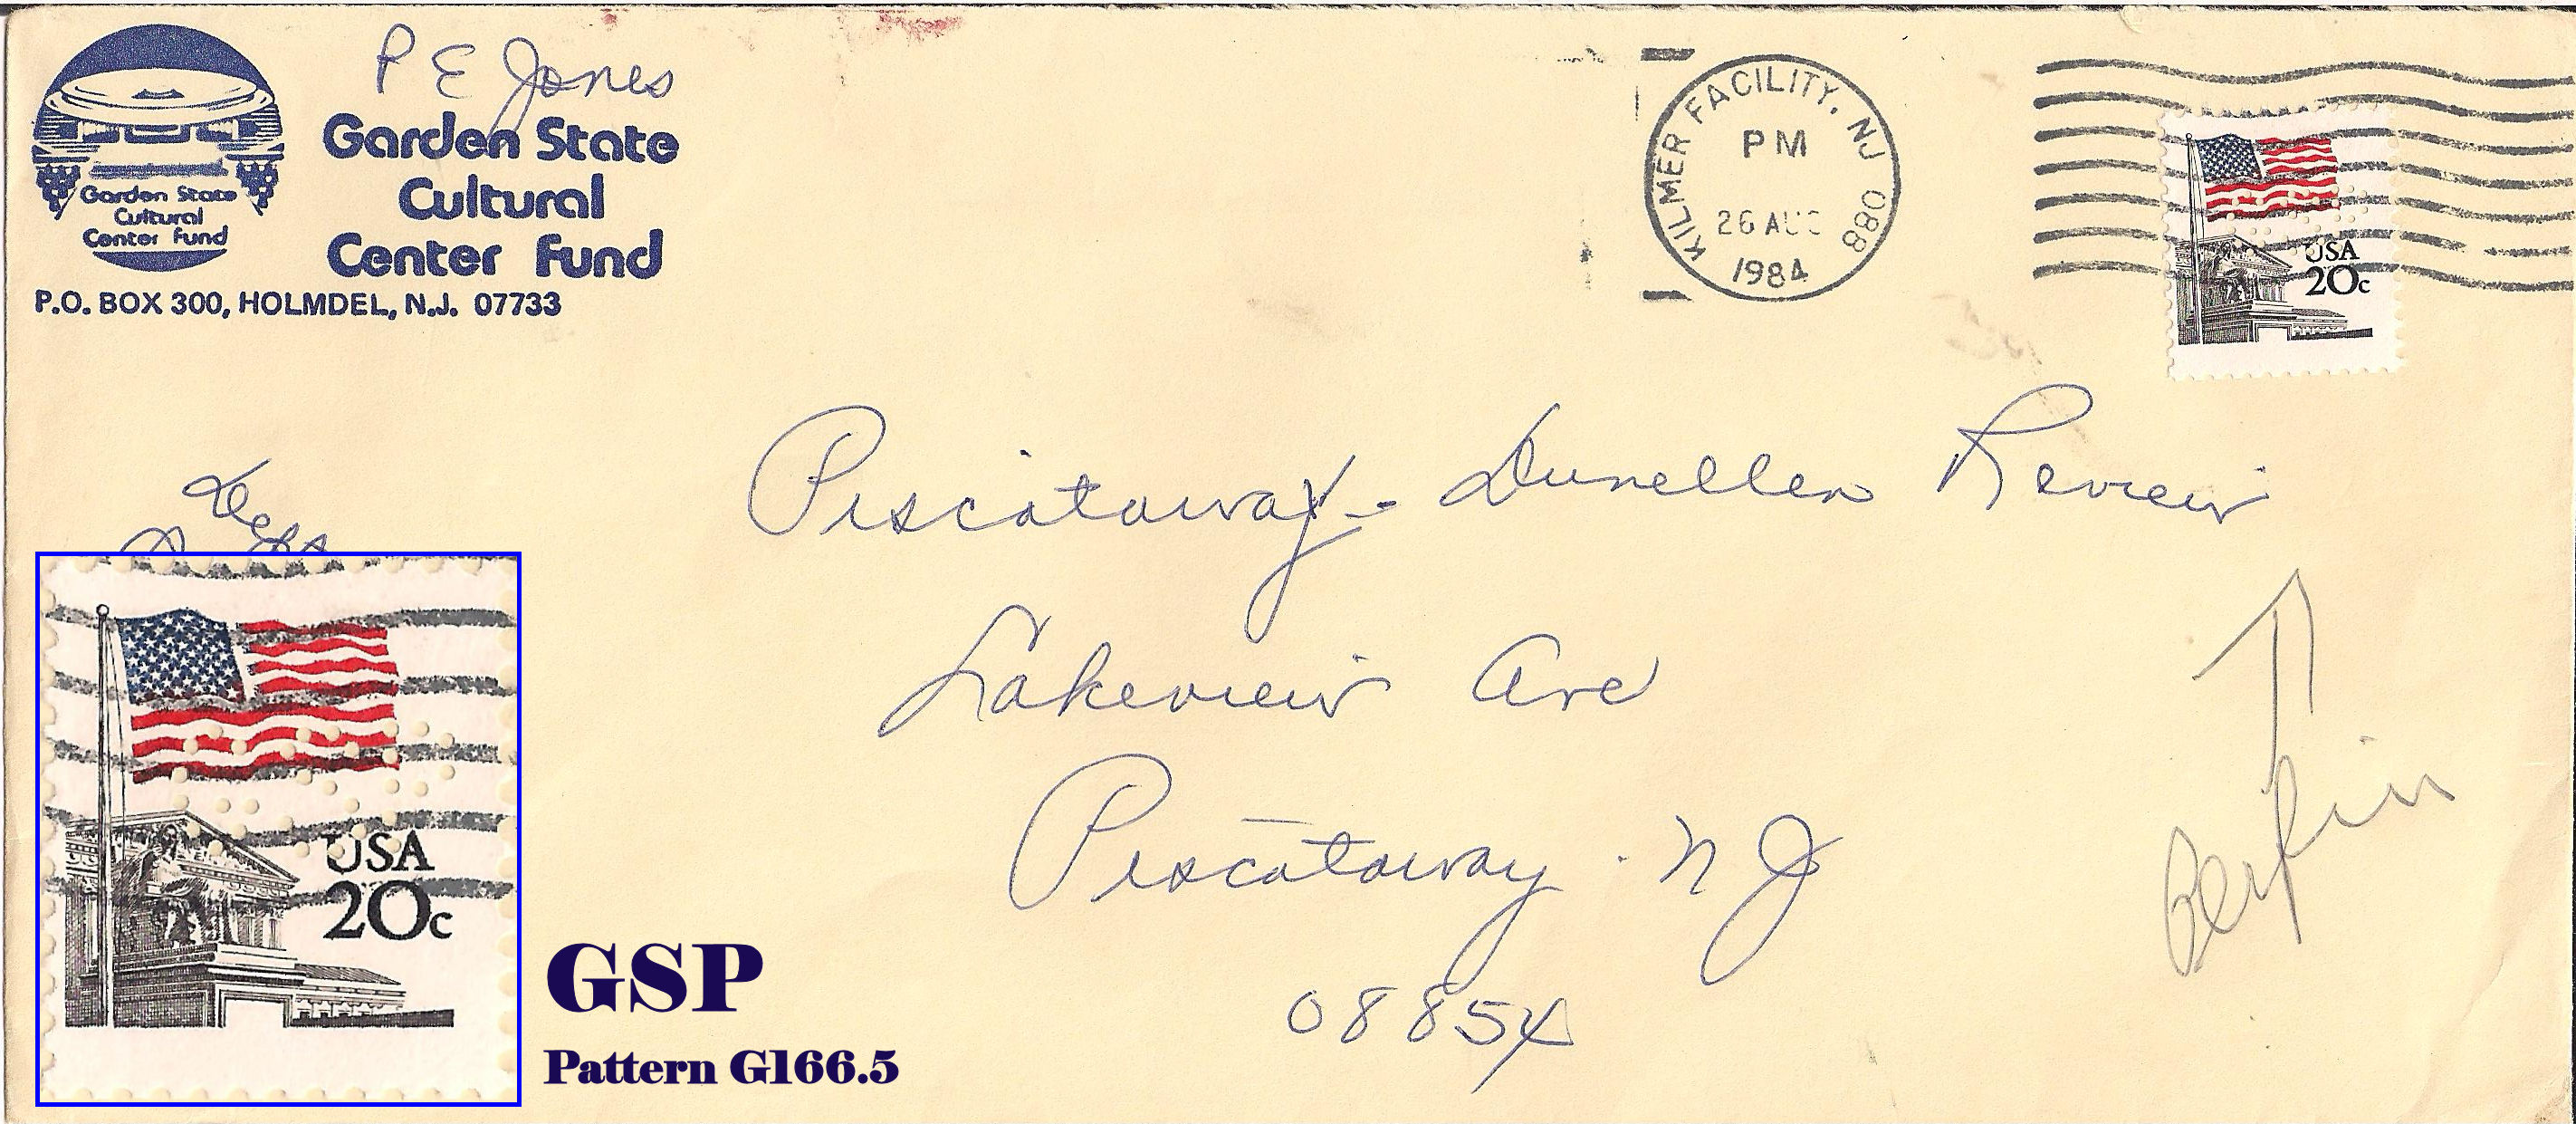 P E Jones
Garden State
Cultural
Center Fund
Garden State
Cultural
Center Fund
P.O. BOX 300, HOLMDEL, N.J. 07733
KILMER FACILITY, NJ 088
PM
26 AUG
1984
USA
20c
Piscataway - Dunellen Review
Lakeview Ave
Piscataway NJ
08854
Perfin
USA
20c
GSP
Pattern G166.5